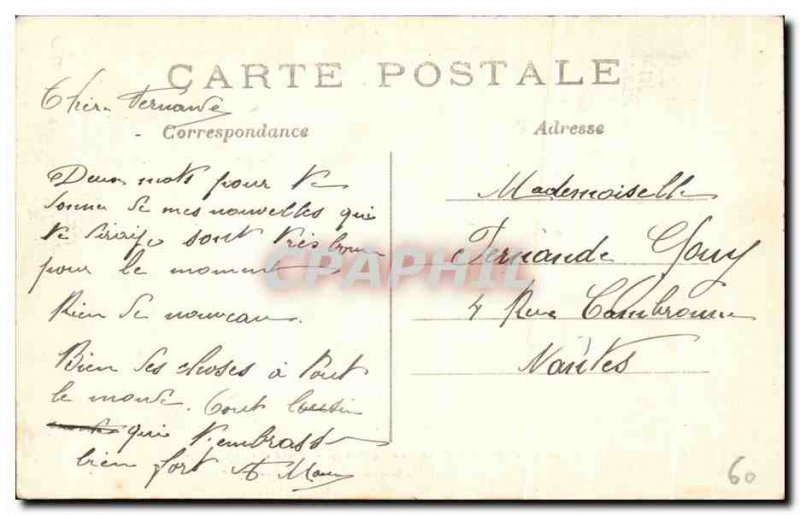 CARTE POSTALE
Chère Fernande
Correspondance
Deux mots pour te
donner de mes nouvelles qui
te dirai sont très
pour le moment
Rien de nouveau.
Bien des choses à tout
le monde. Ton cousin
qui t'embrasse
bien fort A.
Adresse
Mademoiselle
Fernande Gouy
4 Rue Cambronne
Nantes
CPAPHIL
60